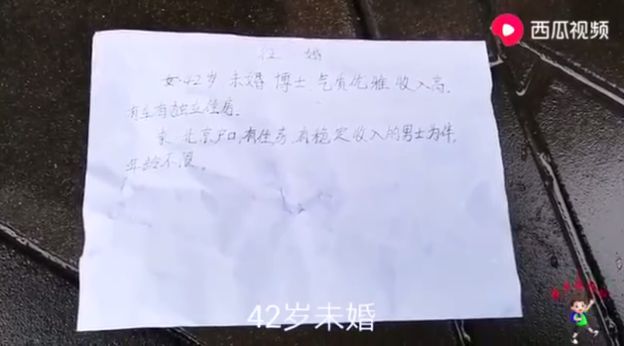 西瓜视频
征 婚
女 42岁 未婚 博士 气质优雅 收入高,
有车有独立住房.
求 北京户口,有住房,有稳定收入的男士为伴,
年龄不限。
42岁未婚